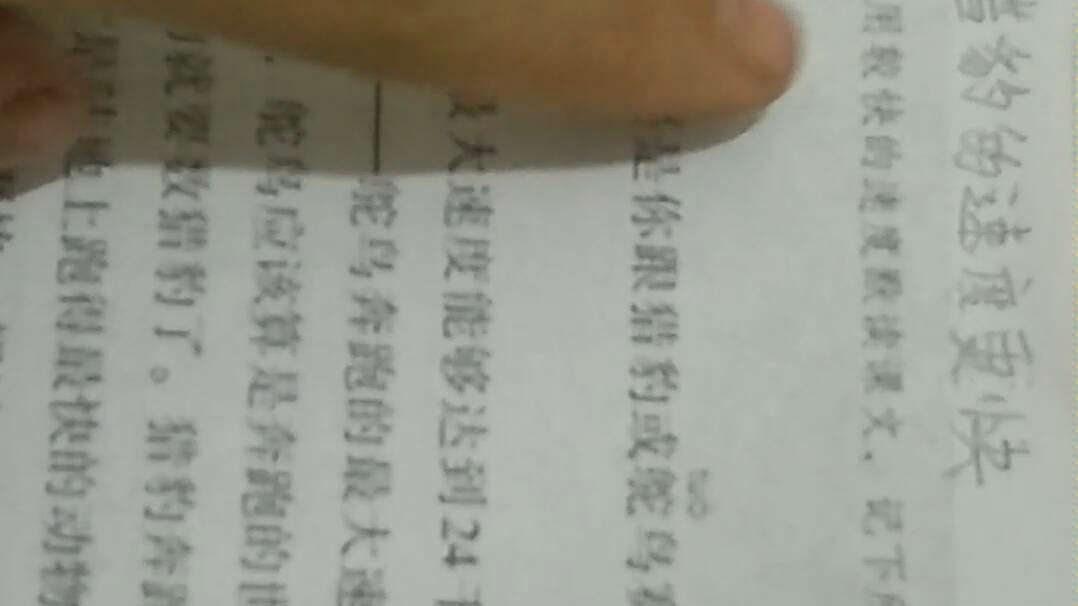 猎豹的速度更快
用较快的速度默读课文，记下
tuó
是你跟猎豹或鸵鸟
大速度能够达到24千
——鸵鸟奔跑的最大速
鸵鸟应该算是奔跑的
就要数猎豹了。猎豹奔跑
地上跑得最快的动物